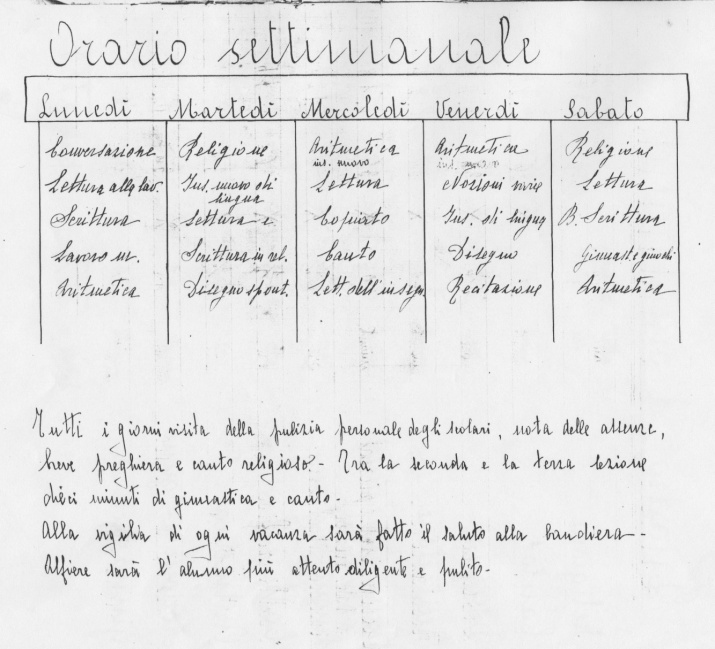 Orario settimanale
Lunedì Martedì Mercoledì Venerdì Sabato
Conversazione Religione Aritmetica Aritmetica Religione
ins. nuovo ins. nuovo
Lettura alla lav. Ins. nuovo di lingua Lettura Nozioni varie Lettura
Scrittura Lettura e Copiato Ins. di lingua B. Scrittura
Lavoro m. Scrittura in rel. Canto Disegno Ginnast e giuochi
Aritmetica Disegno spont. Lett. dell'insegn. Recitazione Aritmetica
Tutti i giorni visita della pulizia personale degli scolari, nota delle assenze,
breve preghiera e canto religioso. - Tra la seconda e la terza lezione
dieci minuti di ginnastica e canto.-
Alla vigilia di ogni vacanza sarà fatto il saluto alla bandiera -
Alfiere sarà l'alunno più attento diligente e pulito-